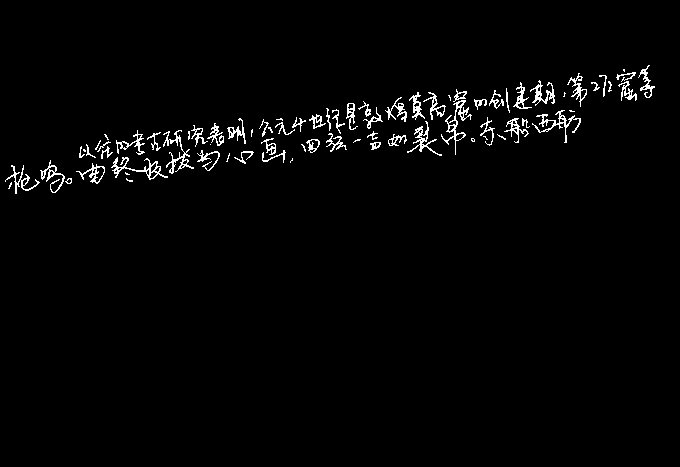 以往的考古研究表明,公元4世纪是敦煌莫高窟的创建期,第272窟等
枪鸣。曲终收拨当心画,四弦一声如裂帛。东船西舫